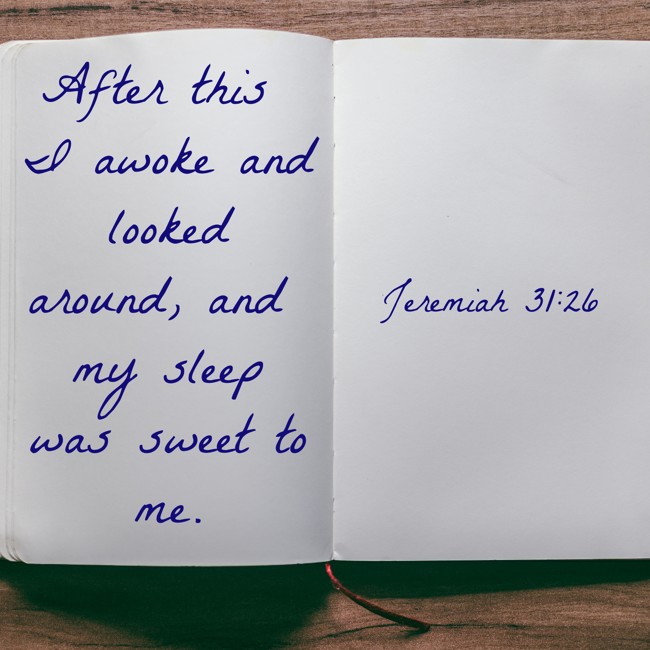 After this
I awoke and
looked
around, and
my sleep
was sweet to
me.
Jeremiah 31:26